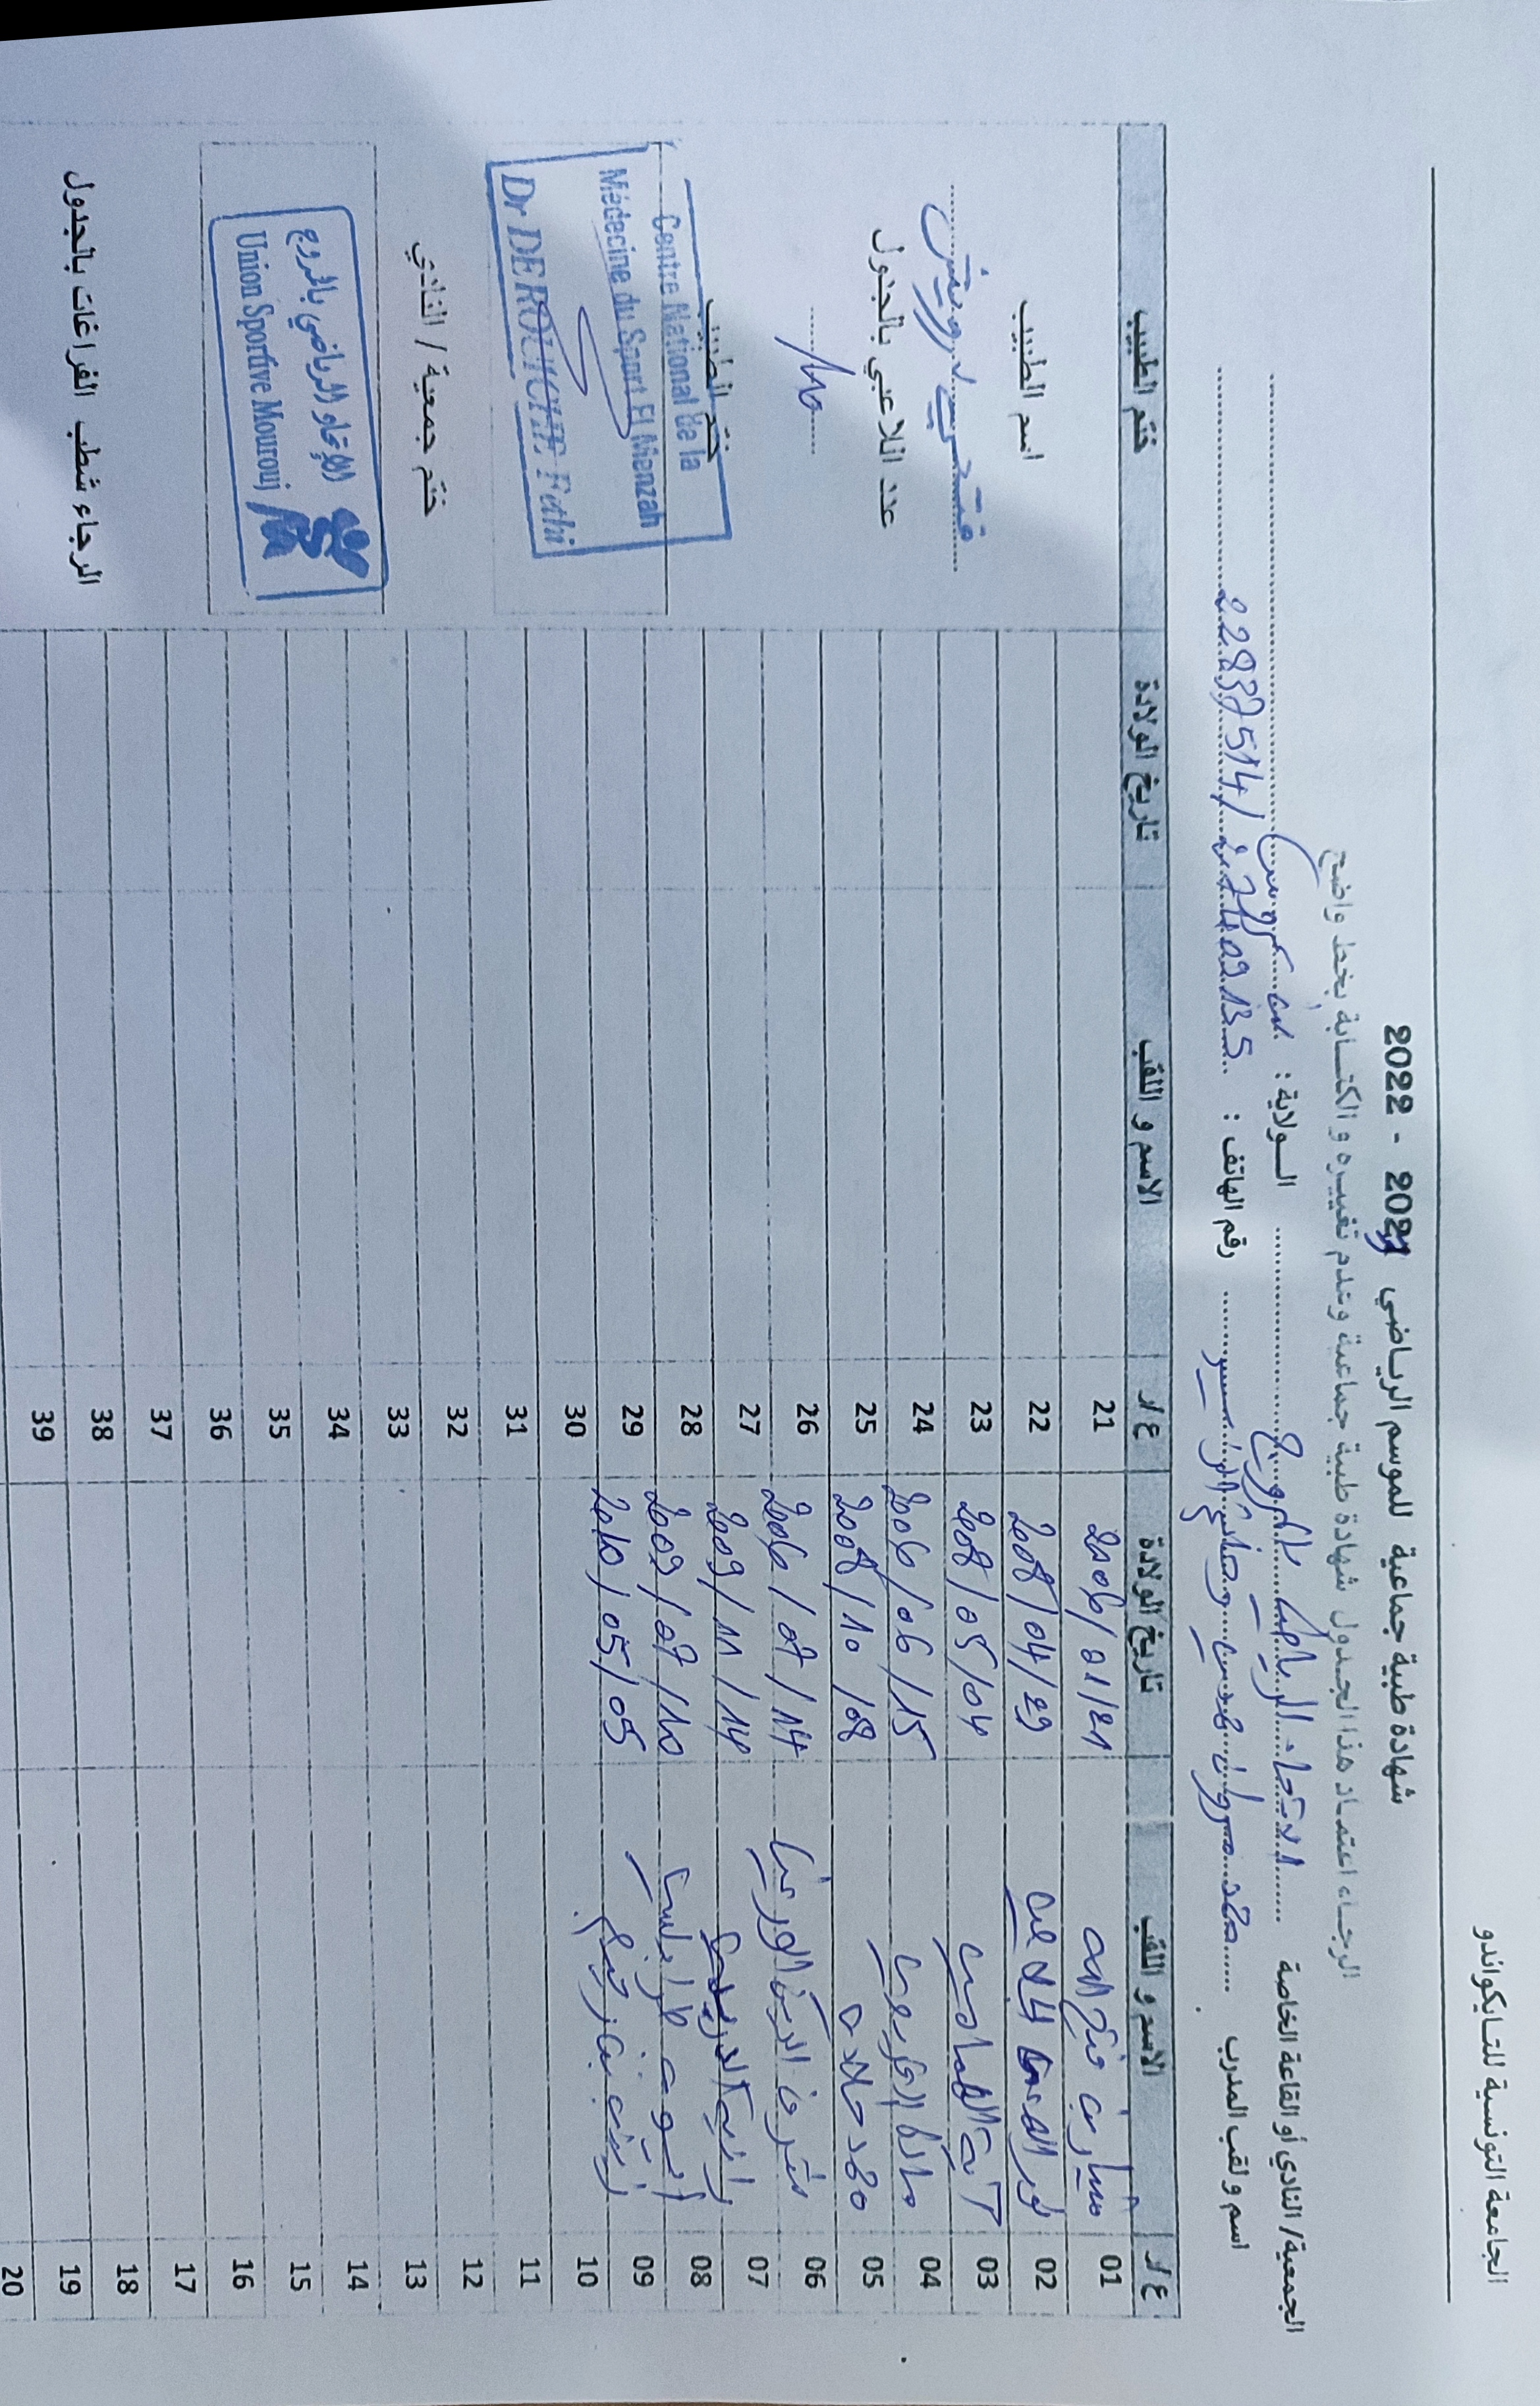 الجامعة التونسية للتايكواندو
شهادة طبية جماعية للموسم الرياضي 2021 - 2022
الرجاء اعتماد هذا الجدول شهادة طبية جماعية وعدم تغييره و الكتابة بخط واضح
الجمعية/ النادي أو القاعة الخاصة الاتحاد الرياضي بالمروج الولاية : بن عروس
اسم و لقب المدرب محمد مروان رقم الهاتف : 22837514 /
ع/ر الاسم و اللقب تاريخ الولادة ع/ر الاسم و اللقب تاريخ الولادة ختم الطبيب
01 ميسارين فتح الله 2006/01/21 21
02 نور الهدى 2008/04/29 22
03 آية الهمامي 2008/05/04 23
04 2006/06/15 24
05 محمد 2008/10/08 25
06 شرف الدين 2006/07/14 26
07 رانية الدريدي 2009/11/14 27
08 آية طرابلسي 2009/07/10 28
09 زينب 2010/05/05 29
10 30
11 31
12 32
13 33
14 34
15 35
16 36
17 37
18 38
19 39
20
اسم الطبيب
فتحي درويش
عدد اللاعبي بالجدول
ختم الطبيب
Centre National de la
Médecine du Sport El Menzah
Dr DEROUICHE Fathi
ختم جمعية / النادي
الإتحاد الرياضي بالمروج
Union Sportive Mourouj
الرجاء شطب الفراغات بالجدول